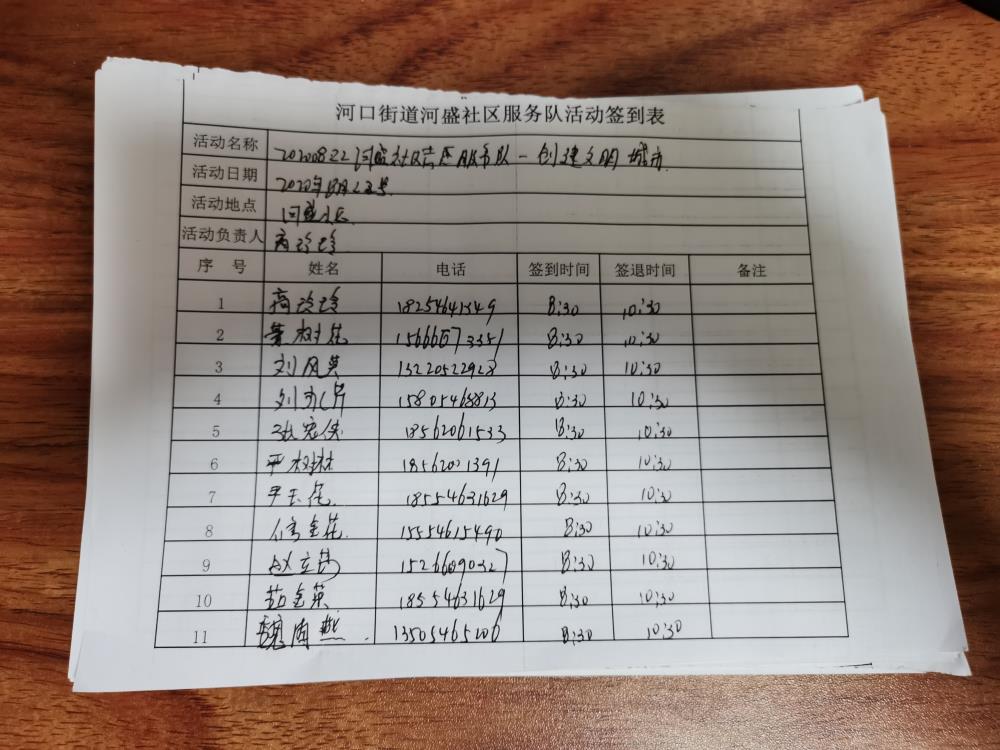 河口街道河盛社区服务队活动签到表
活动名称 20200822河盛社区志愿服务队－创建文明城市
活动日期 2020年8月22号
活动地点 河盛社区
活动负责人 高玲玲
序 号 姓名 电话 签到时间 签退时间 备注
1 高玲玲 18254641349 8:30 10:30
2 15666573351 8:30 10:30
3 刘风英 13220522928 8:30 10:30
4 15805468813 8:30 10:30
5 18562061533 8:30 10:30
6 树林 8:30 10:30
7 18554631629 8:30 10:30
8 信金花 15554615490 8:30 10:30
9 赵立芬 15266009027 8:30 10:30
10 茹金英 18554631629 8:30 10:30
11 魏周燕 13505465206 8:30 10:30